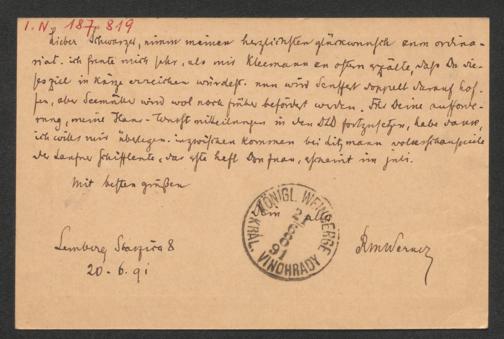 I. N. 187.819
Lieber Schwarzer, nimm meinen herzlichsten glückwunsch zum ordina-
riat. ich freute mich sehr, als mir Kleemann zu ostern erzälte, daß Du die-
ses ziel in Kürze erreichen würdest. nun wird Seuffert doppelt darauf hof-
fen, aber Seemüller wird wol noch früher befördert werden. Für Deine aufforde-
rung, meine Hans-Wurst mitteilungen in den fortzusetzen, habe dank,
ich will's mir überlegen. inzwischen kommen bei volksschauspiele
der Laufner Schiffleute, das erste heft Don Juan, erscheint im juli.
Mit besten grüßen
Dein alter
RMWerner
Lemberg 8
20.6.91
KÖNIGL. WEINBERGE
KRÁL. VINOHRADY
21
6
91